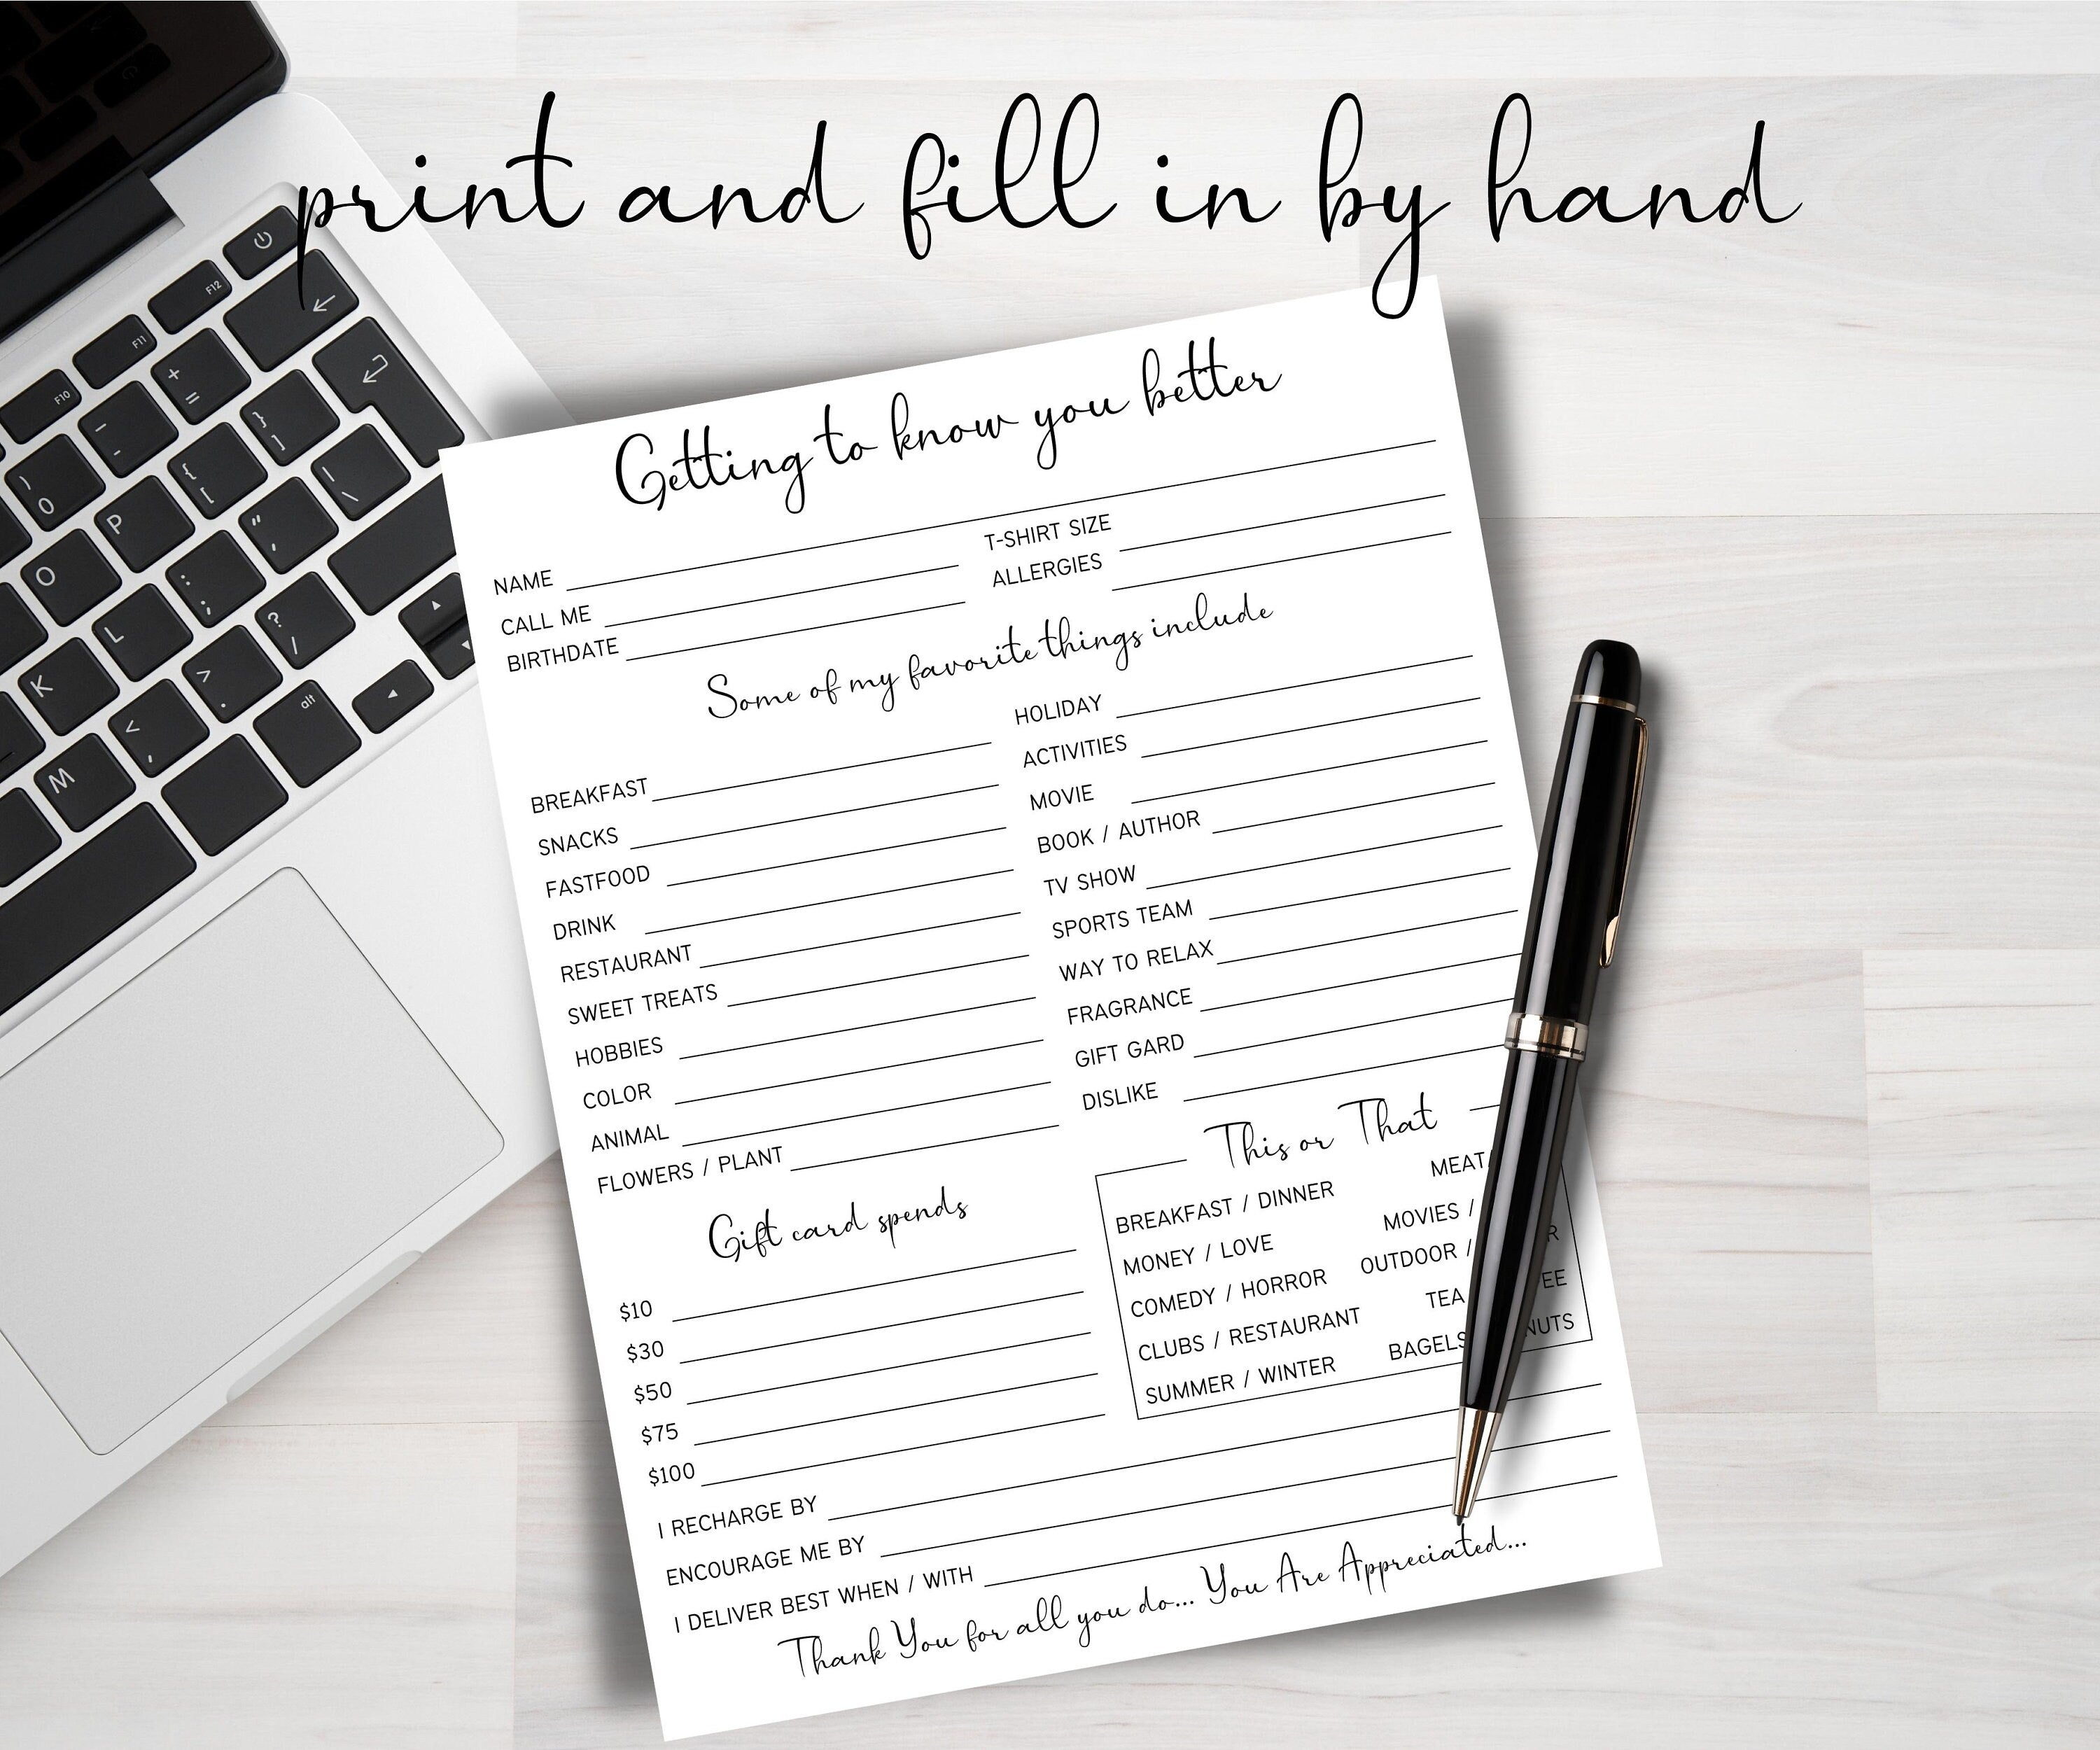 print and fill in by hand
Getting to know you better
NAME
CALL ME
BIRTHDATE
T-SHIRT SIZE
ALLERGIES
Some of my favorite things include
BREAKFAST
SNACKS
FASTFOOD
DRINK
RESTAURANT
SWEET TREATS
HOBBIES
COLOR
ANIMAL
FLOWERS / PLANT
HOLIDAY
ACTIVITIES
MOVIE
BOOK / AUTHOR
TV SHOW
SPORTS TEAM
WAY TO RELAX
FRAGRANCE
GIFT GARD
DISLIKE
Gift card spends
$10
$30
$50
$75
$100
This or That
BREAKFAST / DINNER
MONEY / LOVE
COMEDY / HORROR
CLUBS / RESTAURANT
SUMMER / WINTER
MEAT
MOVIES /
OUTDOOR /
TEA
BAGELS
I RECHARGE BY
ENCOURAGE ME BY
I DELIVER BEST WHEN / WITH
Thank You for all you do... You Are Appreciated...
F10
F11
F12
alt